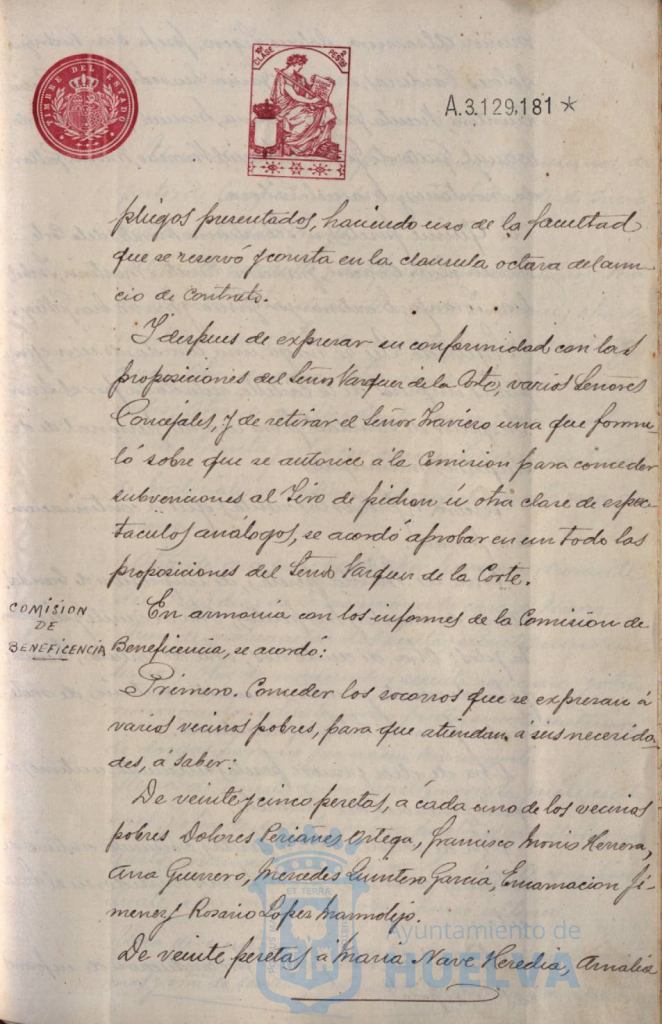 TIMBRE DEL ESTADO
10ª CLASE
2 PESETAS
A.3.129,181*
pliegos presentados, haciendo uso de la facultad
que se reservó y consta en la clausula octava del anun-
cio de contrato.
Y despues de expresar su conformidad con las
proposiciones del Señor Vazquez de la Corte, varios Señores
Concejales, y de retirar el Señor Traviero una que formu-
ló sobre que se autorice á la Comision para conceder
subvenciones al Tiro de pichon ú otra clase de espec-
táculos análogos, se acordó aprobar en un todo las
proposiciones del Señor Vazquez de la Corte.
COMISION
DE
BENEFICENCIA
En armonia con los informes de la Comisión de
Beneficencia, se acordó:
Primero. Conceder los socorros que se expresan á
varios vecinos pobres, para que atiendan á sus necesida-
des, á saber:
De veinte y cinco pesetas, á cada uno de los vecinos
pobres Dolores Periañes Ortega, Francisco Monis Herrera,
Ana Guerrero, Mercedes Quintero García, Encarnacion Ji-
menez y Rosario Lopez Marmolejo.
De veinte pesetas á Maria Nave Heredia, Amalia
ET TERRA
Ayuntamiento de
HUELVA